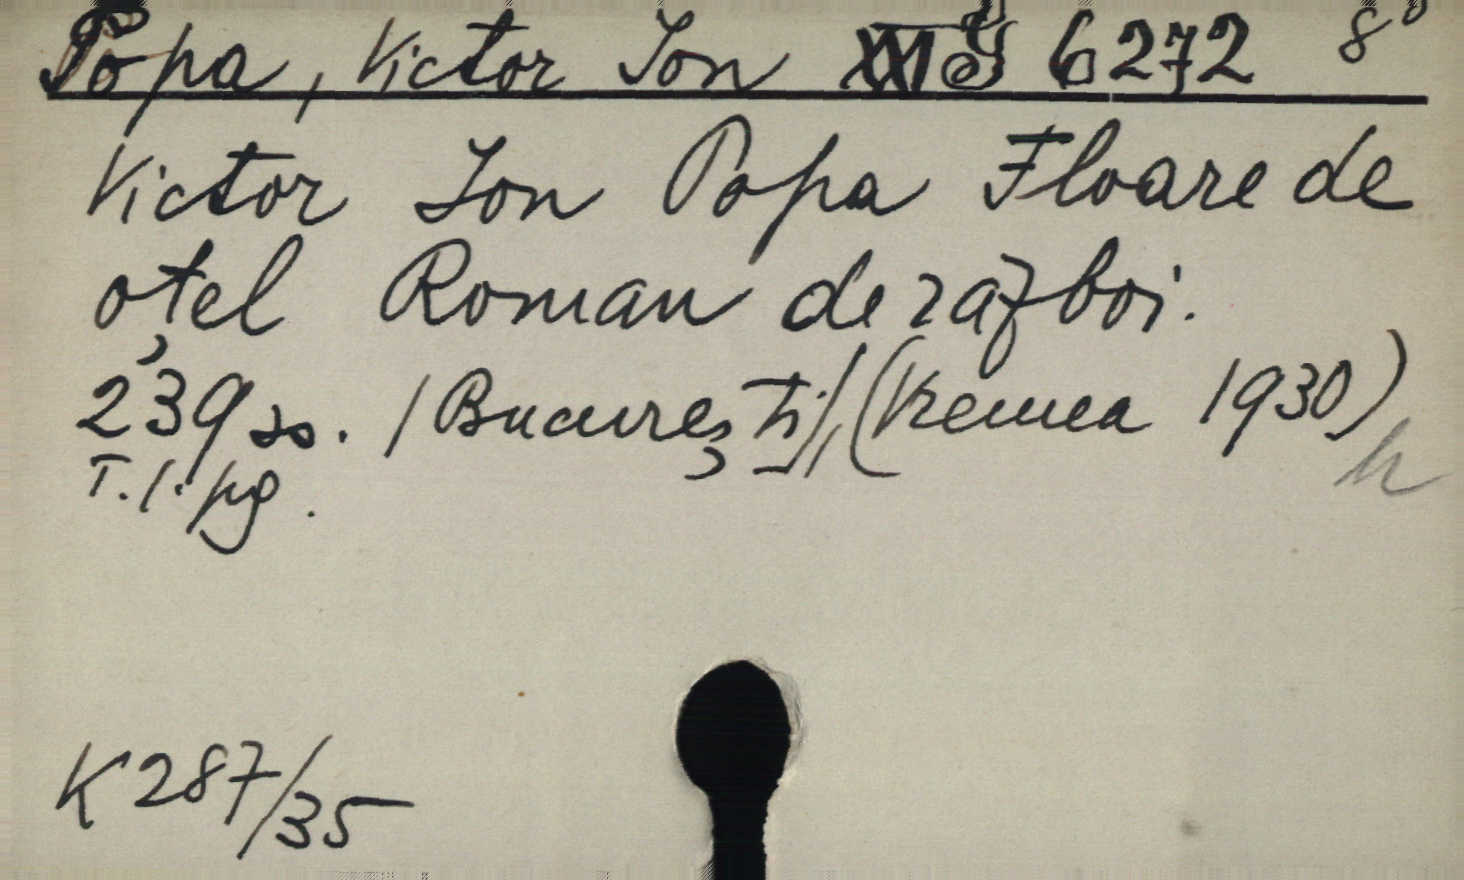 Popa, Victor Ion XXI G 6272 8°
Victor Ion Popa Floare de
oțel Roman de război.
239 so. /București/, (Vremea 1930)
T. l. pg.
K 287/35